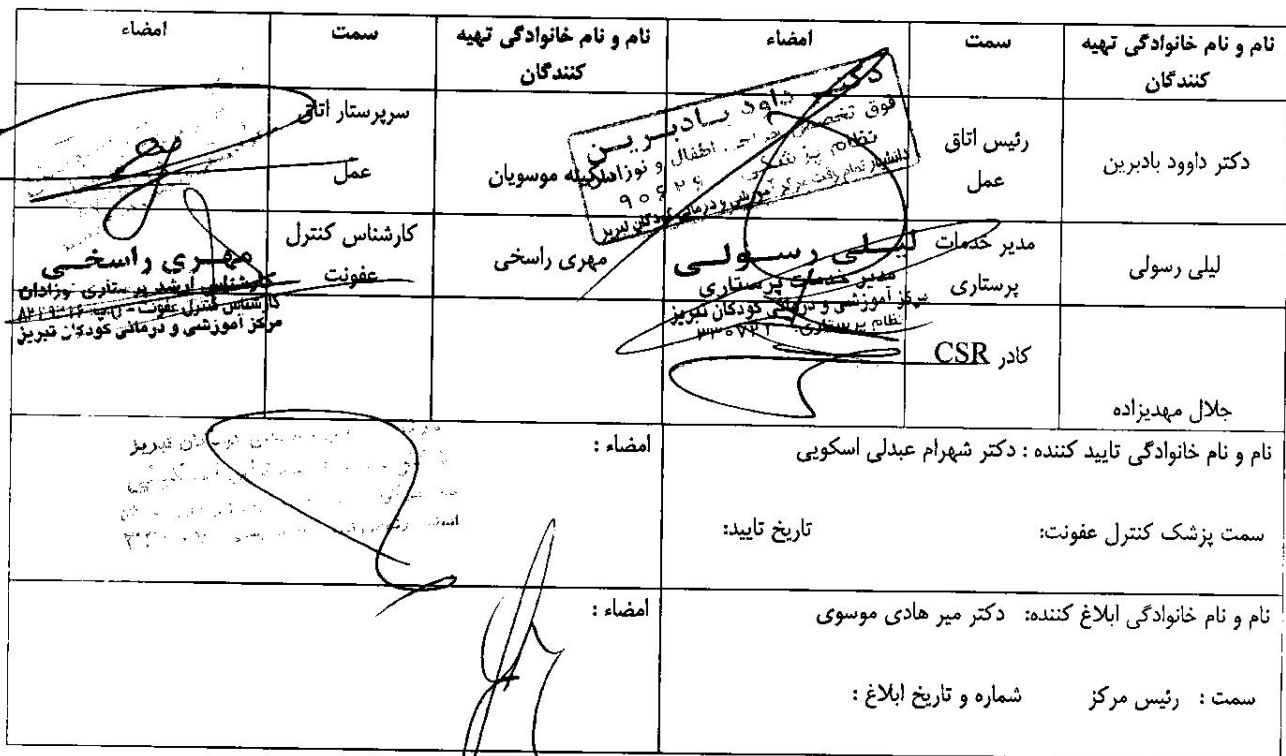 نام و نام خانوادگی تهیه کنندگان
سمت
امضاء
نام و نام خانوادگی تهیه کنندگان
سمت
امضاء
دکتر داوود بادبرین
رئیس اتاق
عمل
دکتر داود بادبرین
فوق تخصص
اطفال و نوزادان
نظام پزشکی
موسویان
سرپرستار اتاق
عمل
لیلی رسولی
مدیر خدمات
پرستاری
لیلی رسولی
مدیر خدمات پرستاری
مرکز آموزشی و درمانی کودکان تبریز
نظام پرستاری
مهری راسخی
کارشناس کنترل
عفونت
مهری راسخی
کارشناس ارشد پرستاری نوزادان
کارشناس کنترل عفونت
مرکز آموزشی و درمانی کودکان تبریز
جلال مهدیزاده
کادر CSR
نام و نام خانوادگی تایید کننده : دکتر شهرام عبدلی اسکویی
امضاء :
سمت پزشک کنترل عفونت: تاریخ تایید:
نام و نام خانوادگی ابلاغ کننده: دکتر میر هادی موسوی
امضاء :
سمت : رئیس مرکز شماره و تاریخ ابلاغ :